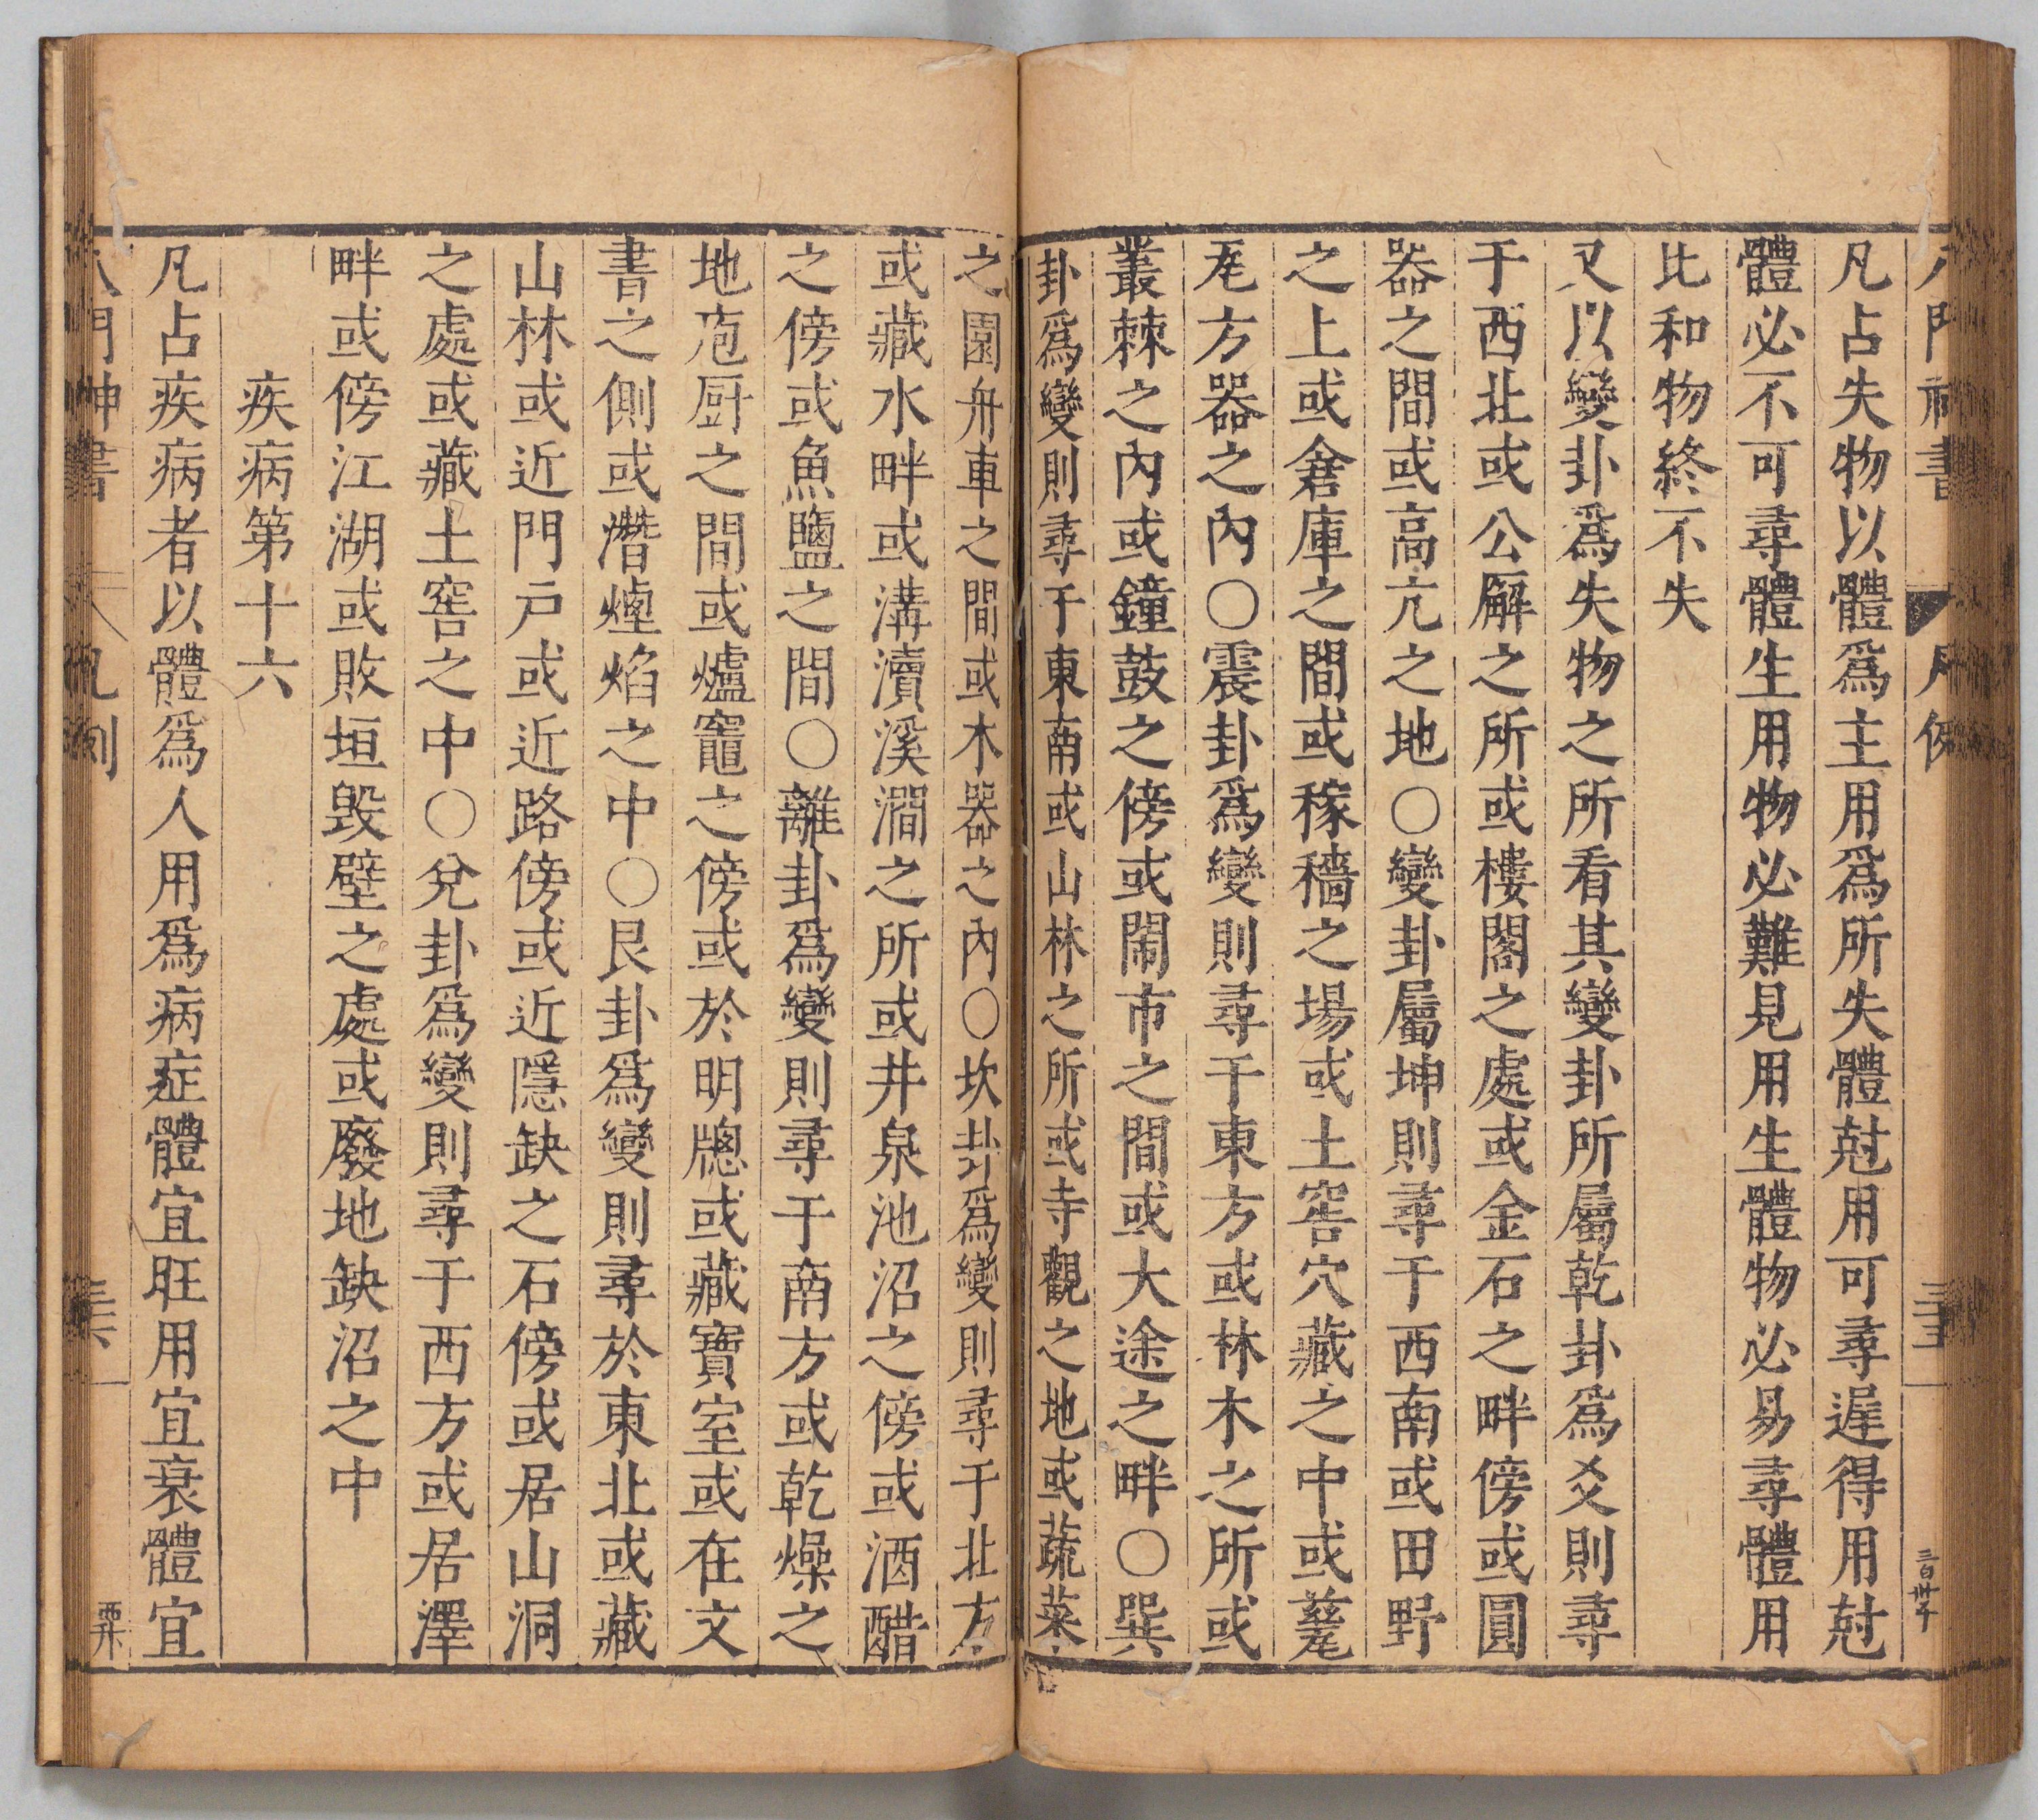 凡占失物以體爲主用爲所失體尅用可尋遲得用尅
體必不可尋體生用物必難見用生體物必易尋體用
比和物終不失
又以變卦爲失物之所看其變卦所屬乾卦爲爻則尋
于西北或公廨之所或樓閣之處或金石之畔傍或圓
器之間或高亢之地○變卦屬坤則尋于西南或田野
之上或倉庫之間或稼穡之場或土窖穴藏之中或
方器之內○震卦爲變則尋于東方或林木之所或
叢棘之內或鐘鼓之傍或鬧市之間或大途之畔○巽
卦爲變則尋于東南或山林之所或寺觀之地或蔬菜
之園舟車之間或木器之內○坎卦爲變則尋于北方
或藏水畔或溝瀆溪澗之所或井泉池沼之傍或酒醋
之傍或魚鹽之間○離卦爲變則尋于南方或乾燥之
地庖厨之間或爐竈之傍或於明牕或藏寶室或在文
書之側或潛煙焰之中○艮卦爲變則尋於東北或藏
山林或近門戸或近路傍或近隱缺之石傍或居山洞
之處或藏土窖之中○兌卦爲變則尋于西方或居澤
畔或傍江湖或敗垣毁壁之處或廢地缺沼之中
疾病第十六
凡占疾病者以體爲人用爲病症體宜旺用宜衰體宜
門神書 凡例 三六